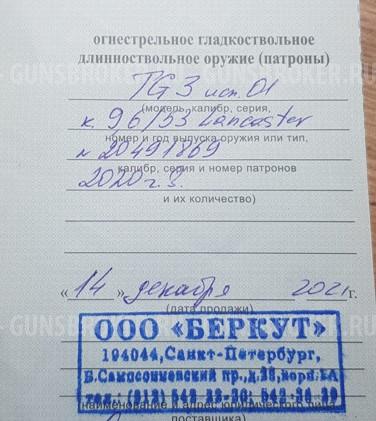 огнестрельное гладкоствольное
длинноствольное оружие (патроны)
TG3 исп. 01
(модель, калибр, серия,
к. 9,6/53 Lancaster
номер и год выпуска оружия или тип,
№ 20491869
калибр, серия и номер патронов
2020 г.в.
и их количество)
«14» декабря 2021 г.
(дата продажи)
ООО «БЕРКУТ»
194044, Санкт-Петербург,
Б.Сампсониевский пр., д.38, корп.1А
тел.: (812) 542
(наименование и адрес юридического лица
поставщика)
GUNSBROKER.RU